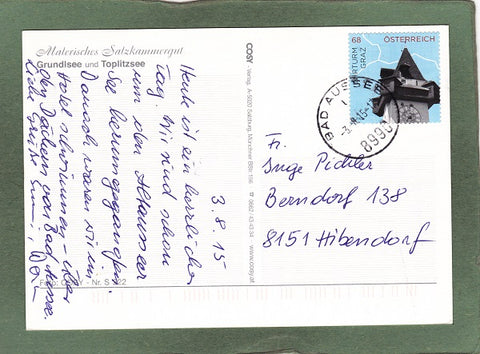 Malerisches Salzkammergut
Grundlsee und Toplitzsee
3.8.15
Heute ist ein herrlicher
Tag. Wir sind schon
um den Altausseer
See herumgegangen.
Danach waren wir im
Hotel schwimmen - über
den Dächern von Bad Aussee.
Liebe Grüße
Foto: COSY - Nr. S 122
COSY Verlag, A-5020 Salzburg, Münchner BStr. 156
www.cosy.at
68 ÖSTERREICH
UHRTURM
GRAZ
BAD AUSSEE
8990
Fr.
Inge Pichler
Berndorf 138
8151 Hibendorf